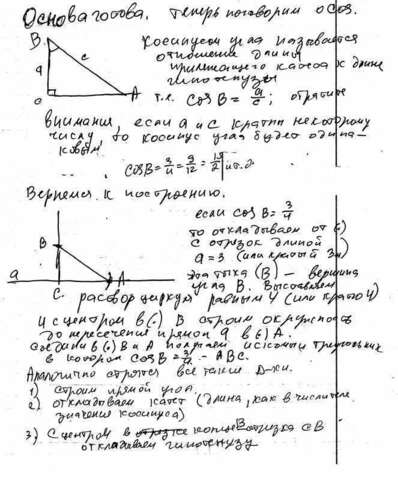 Основа готова. Теперь поговорим о Cos.
Косинусом угла называется
отношение длины
прилежащего катета к длине
гипотенузы
B
c
a
A
т.е. cos B = a/c; обратите
внимания, если a и c кратны некоторому
числу то косинус угла будет одина-
ковым
cos B = 3/4 = 9/12 = и т.д.
Вернемся к построению.
если cos B = 3/4
то откладываем от (•)
C отрезок длиной
a = 3 (или кратый 3м)
эта тчка (B) – вершина
угла B. Выставляем
B
A
a
C.
раствор циркуля равным 4 (или кратно 4)
и с центром в (•) B строим окружность
до пересечения прямой a в (•) A.
соединив (•) B и A получаем искомый треугольник
в котором cos B = 3/4 - ABC.
Аналогично строятся все такие Δ-ки.
1) строим прямой угол
2) откладываем катет (длина, как в числителе
значения косинуса)
3) С центром в конце B отрезка CB
откладываем гипотенузу